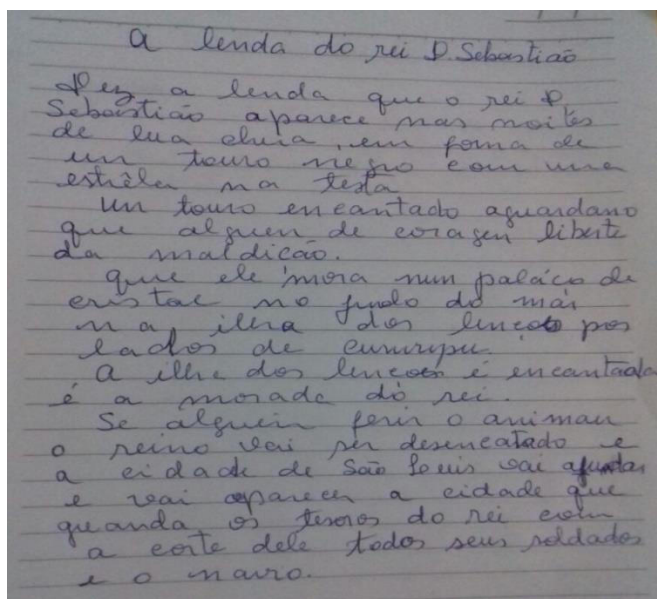 A lenda do rei D. Sebastião
Diz a lenda que o rei D.
Sebastião aparece nas noites
de lua cheia, em forma de
um touro negro com uma
estrêla na testa
Um touro encantado aguardano
que alguen de coragen liberte
da maldicão.
que ele mora num palácio de
cristal no fundo do mar
na ilha dos lençois por
lados de cururupu.
A ilha dos lencois é encantada
é a morada do rei.
Se alguein ferir o animau
o reino vai ser desencatado e
a cidade de São Louis vai afundar
e vai aparecer a cidade que
guanda os tesoros do rei com
a corte dele todos seus soldados
e o navio.